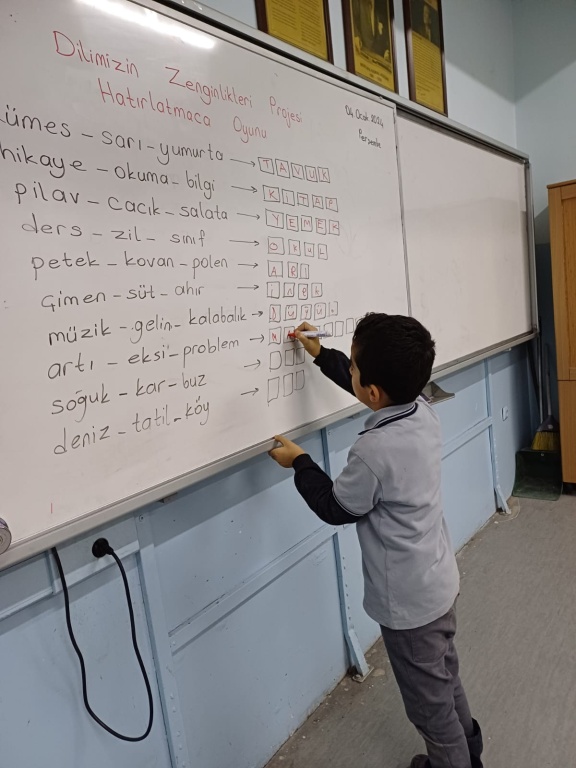 Dilimizin Zenginlikleri Projesi
Hatırlatmaca Oyunu
04 Ocak 2024
Perşembe
kümes - sarı - yumurta → TAVUK
hikaye - okuma - bilgi → KITAP
pilav - cacık - salata → YEMEK
ders - zil - sınıf → OKUL
petek - kovan - polen → ARI
çimen - süt - ahır → İNEK
müzik - gelin - kalabalık → DÜĞÜN
artı - eksi - problem → M
soğuk - kar - buz →
deniz - tatil - köy →